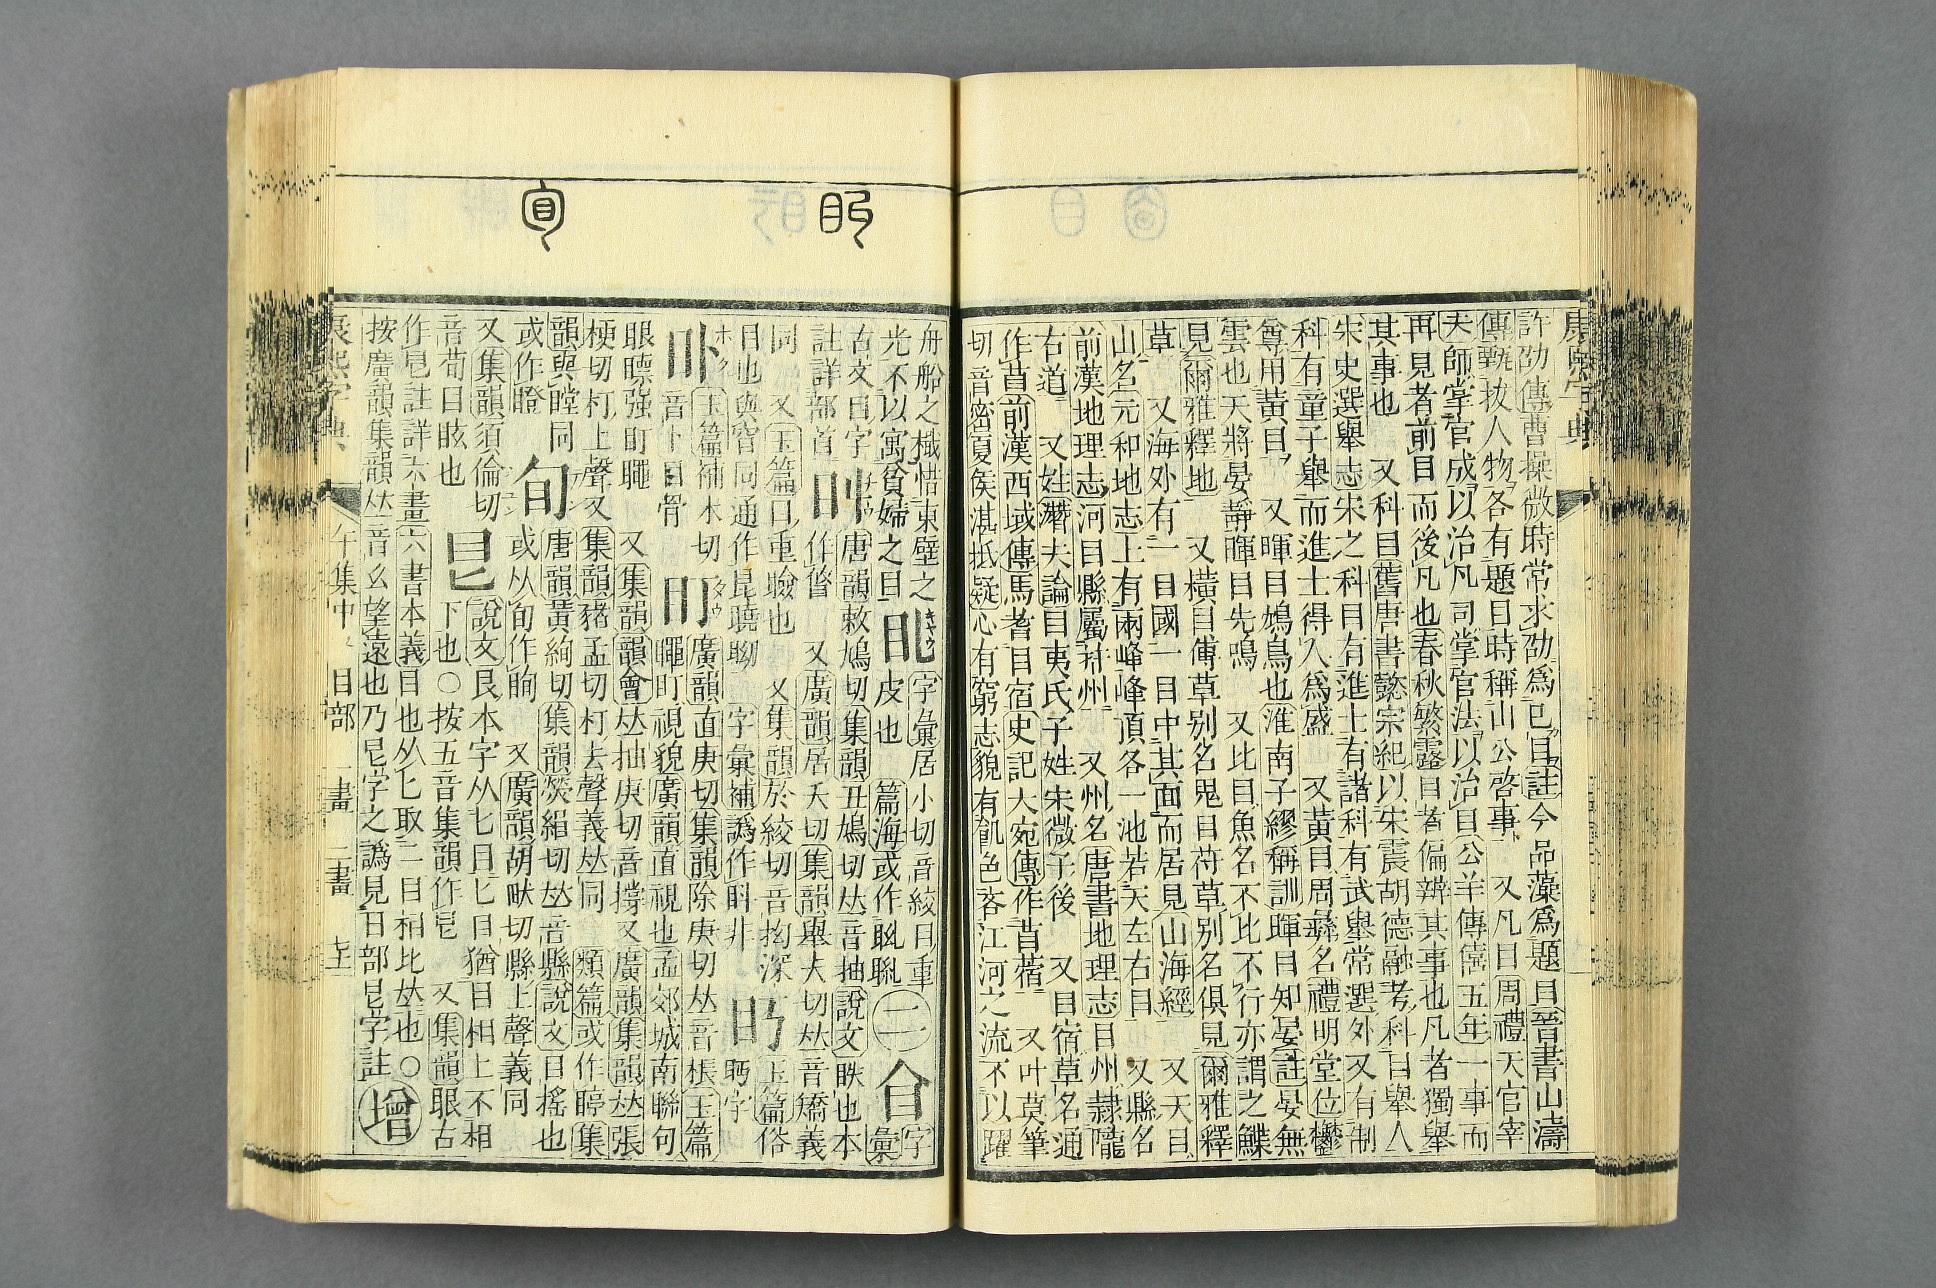 康熙字典
許劭傳曹操微時常求劭爲己目註今品藻爲題目晉書山濤
傳甄拔人物各有題目時稱山公啓事 又凡目周禮天官宰
夫師掌官成以治凡司掌官法以治目公羊傳僖五年一事而
再見者前目而後凡也春秋繁露目者偏辨其事也凡者獨舉
其事也 又科目舊唐書懿宗紀以宋震胡德融考科目舉人
宋史選舉志宋之科目有進士有諸科有武舉常選外又有制
科有童子舉而進士得人爲盛 又黃目周彝名禮明堂位鬱
尊用黃目 又暉目鴆鳥也淮南子繆稱訓暉目知晏註晏無
雲也天將晏靜暉目先鳴 又比目魚名不比不行亦謂之鰈
見爾雅釋地 又橫目傅草別名鬼目苻草別名俱見爾雅釋
草 又海外有一目國一目中其面而居見山海經 又天目
山名元和地志上有兩峰峰頂各一池若天左右目 又縣名
前漢地理志河目縣屬幷州 又州名唐書地理志目州隷隴
右道 又姓潛夫論目夷氏子姓宋微子後 又目宿草名通
作苜前漢西域傳馬耆目宿史記大宛傳作苜蓿 又叶莫筆
切音密夏侯湛抵疑心有窮志貌有飢色吝江河之流不以躍
舟船之檝惜東壁之 字彙居小切音絞目重
光不以寓貧婦之目 皮也 篇海或作 二 字彙
古文目字 唐韻敕鳩切集韻丑鳩切𠀤音抽說文眣也本
註詳部首 作 又廣韻居夭切集韻舉夭切𠀤音矯義
同 又玉篇目重瞼也 又集韻於絞切音拗深 玉篇俗
目也與窅同通作 字彙補譌作 非 眄字
盯 玉篇補木切 廣韻直庚切集韻除庚切𠀤音棖玉篇
音卜目骨 䁅盯視貌廣韻直視也孟郊城南聯句
眼瞟强盯䁅 又集韻韻會𠀤抽庚切音撐又廣韻集韻𠀤張
梗切朾上聲又集韻豬孟切朾去聲義𠀤同 類篇或作 集
韻與瞠同 旬 唐韻黃絢切集韻熒絹切𠀤音縣說文目搖也
或作瞪 或从旬作眴 又廣韻胡畎切縣上聲義同
又集韻須倫切 㫐 說文艮本字从匕目匕目猶目相匕不相
音荀目眩也 下也○按五音集韻作 又集韻眼古
作 註詳六畫六書本義目也从匕取二目相比𠀤也○
按廣韻集韻𠀤音幺望遠也乃 字之譌見日部 字註 增
康熙字典 午集中 目部 一畫 二畫